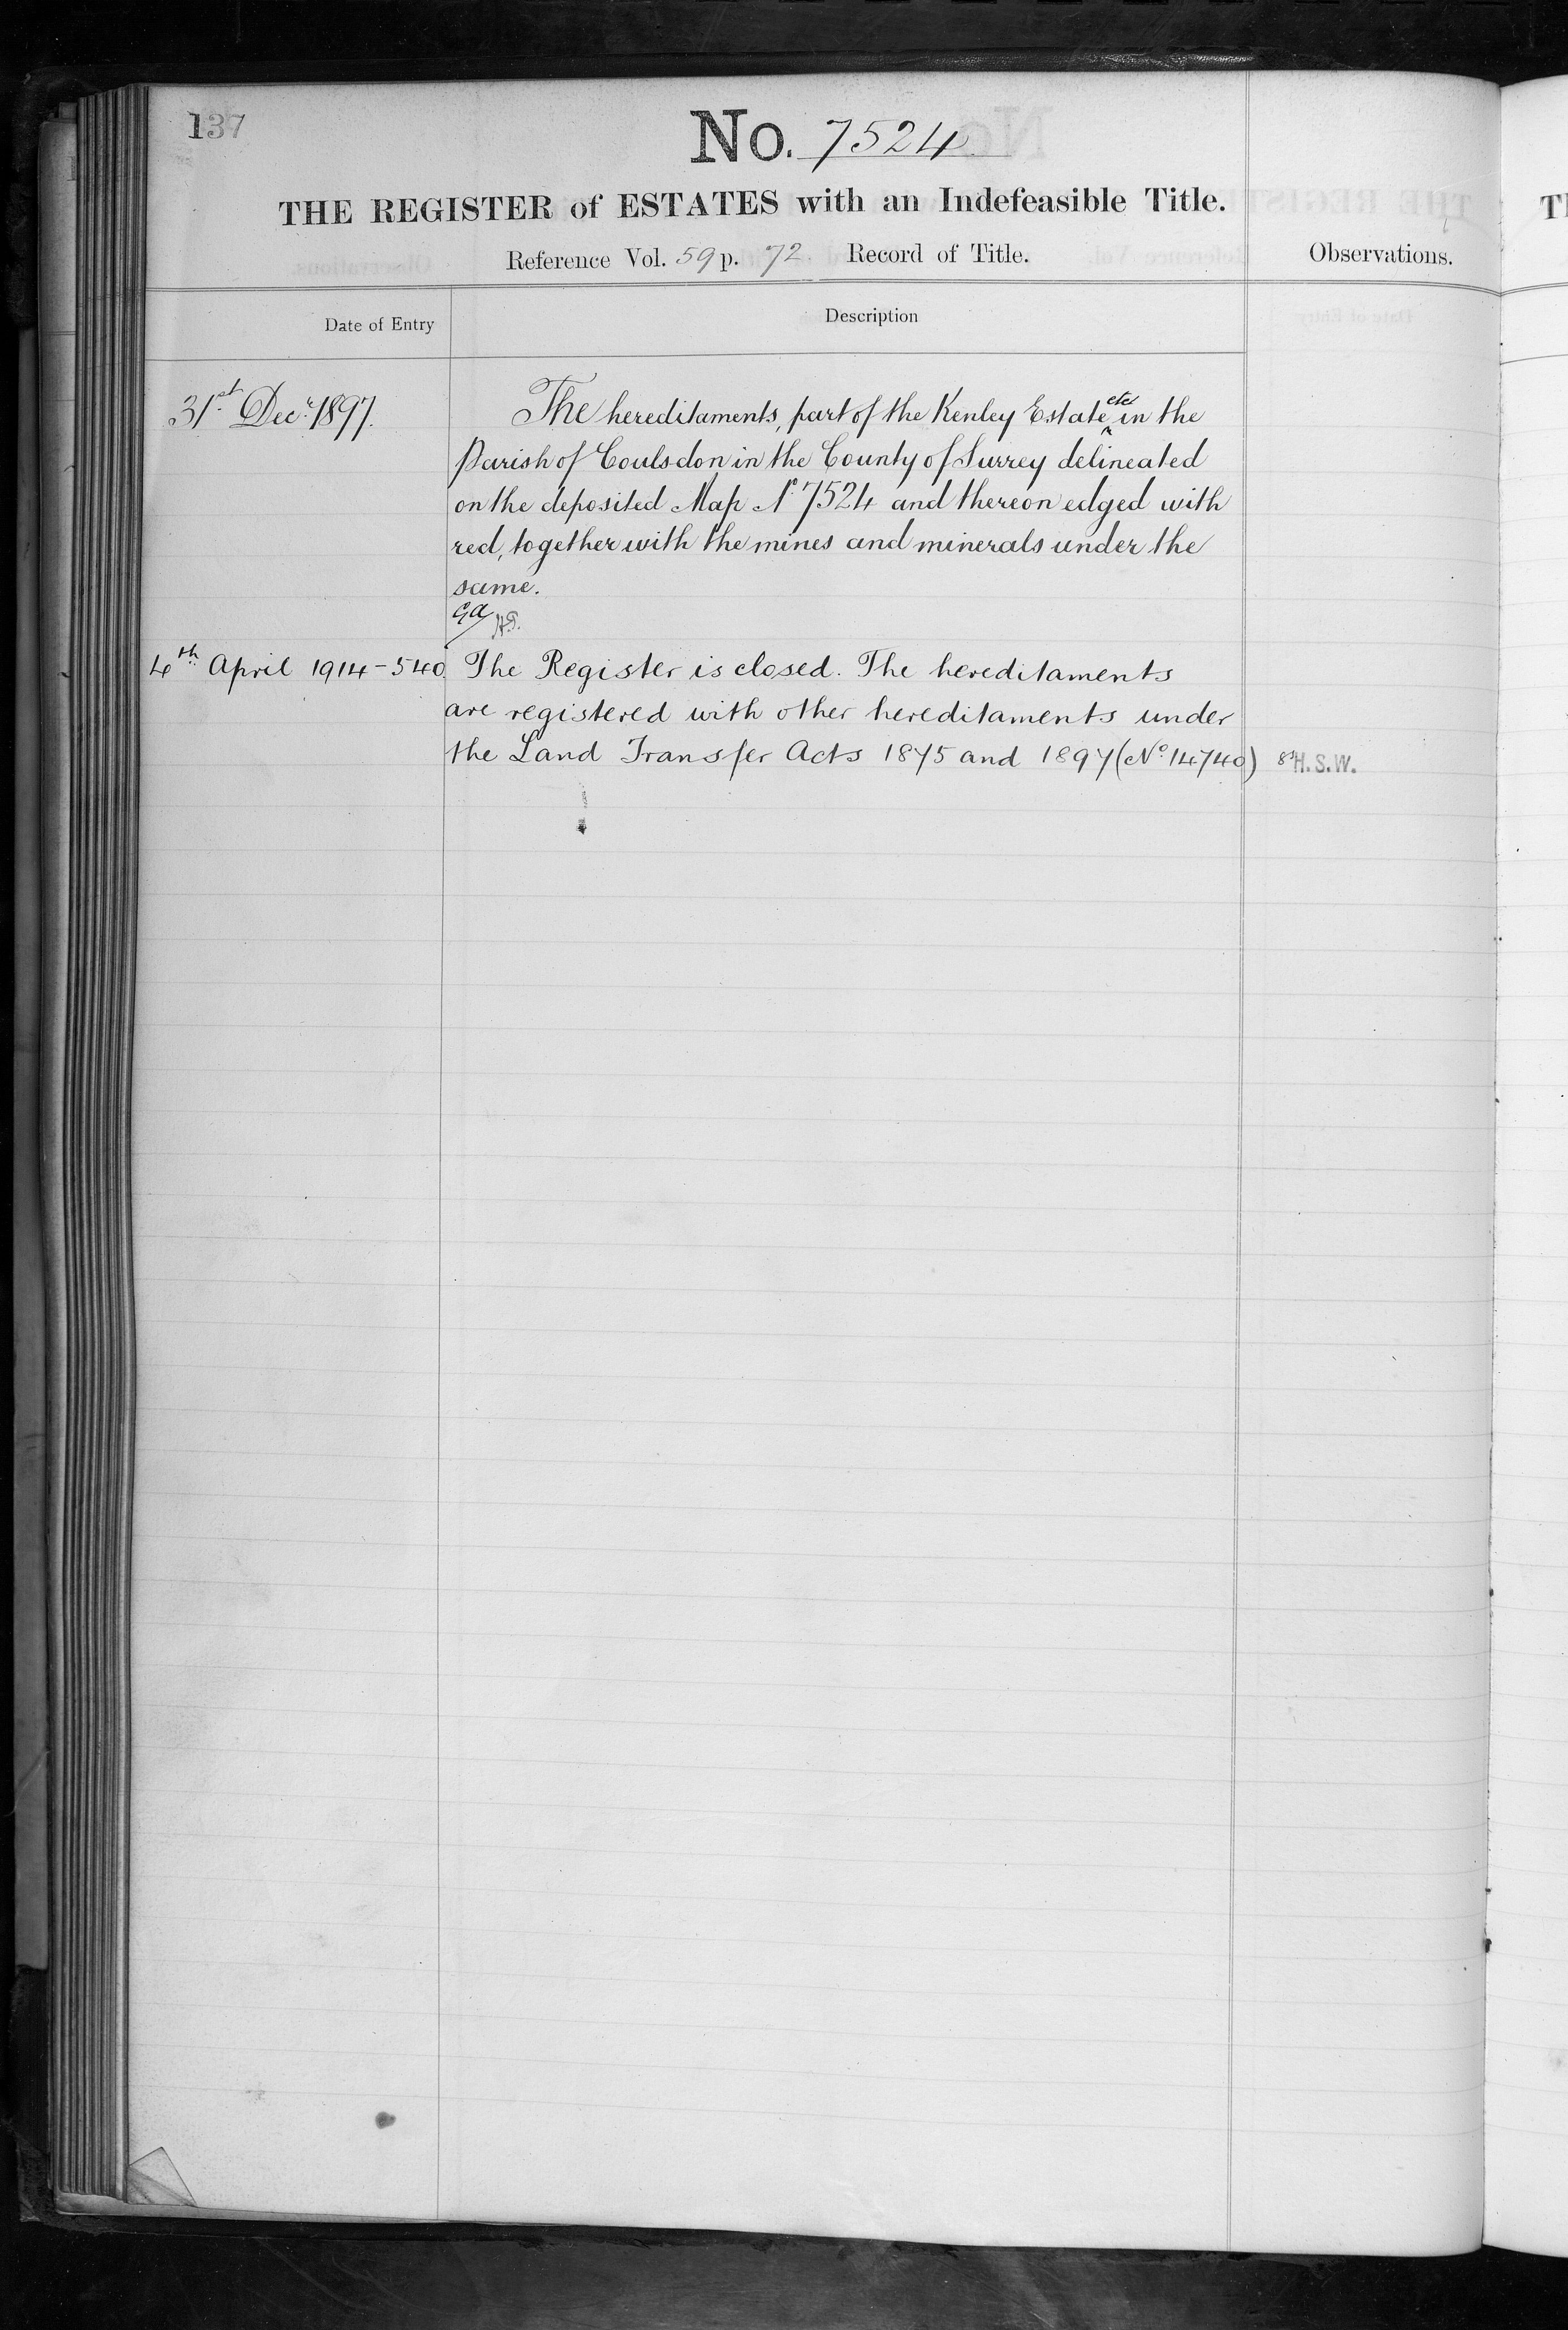 137
No. 7524
THE REGISTER of ESTATES with an Indefeasible Title.
Reference Vol. 59 p. 72. Record of Title.
Observations.
Date of Entry
Description
31st Decr. 1897.
The hereditaments, part of the Kenley Estate etc in the
Parish of Coulsdon in the County of Surrey delineated
on the deposited Map No 7524 and thereon edged with
red, together with the mines and minerals under the
same.
4th April 1914-540. The Register is closed. The hereditaments
are registered with other hereditaments under
the Land Transfer Acts 1875 and 1897 (No. 14740) H.S.W.